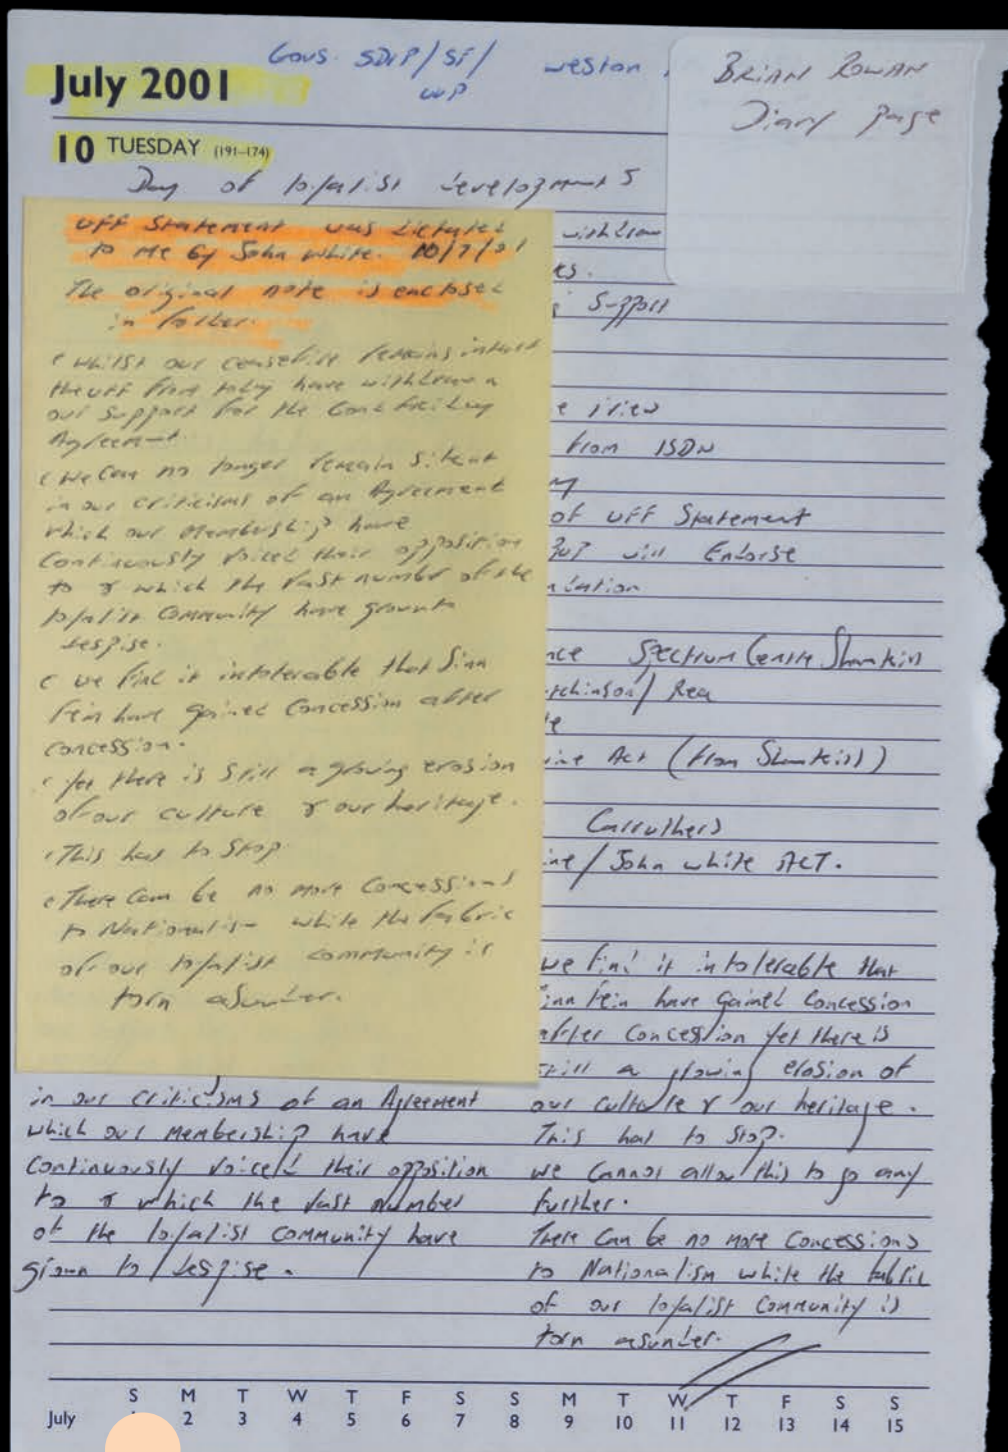 July 2001
Govs. SDLP/SF/
UUP
Weston
BRIAN ROWAN
Diary page
10 TUESDAY (191–174)
Day of loyalist developments
UFF Statement was dictated
to me by John White. 10/7/01
The original note is enclosed
in folder.
Whilst our ceasefire remains intact
the UFF from today have withdrawn
our support for the Good Friday
Agreement.
We can no longer remain silent
in our criticisms of an Agreement
which our membership have
continuously voiced their opposition
to & which the vast number of the
loyalist community have grown to
despise.
We find it intolerable that Sinn
Fein have gained concession after
concession.
Yet there is still a growing erosion
of our culture & our heritage.
This has to stop
There can be no more concessions
to Nationalism while the fabric
of our loyalist community is
torn asunder.
withdraw
es.
Support
e i view
from ISDN
of UFF Statement
will Endorse
nce Spectrum Centre Shankill
tchinson / Rea
te
ine Act (from Shankill)
Carruthers
ine / John White ACT.
in our criticisms of an Agreement
which our membership have
continuously voiced their opposition
to & which the vast number
of the loyalist community have
grown to despise.
we find it intolerable that
inn Fein have gained concession
after concession yet there is
still a growing erosion of
our culture & our heritage.
This has to stop.
we cannot allow this to go any
further.
There can be no more concessions
to Nationalism while the fabric
of our loyalist community is
torn asunder.
S M T W T F S S M T W T F S S
July 2 3 4 5 6 7 8 9 10 11 12 13 14 15